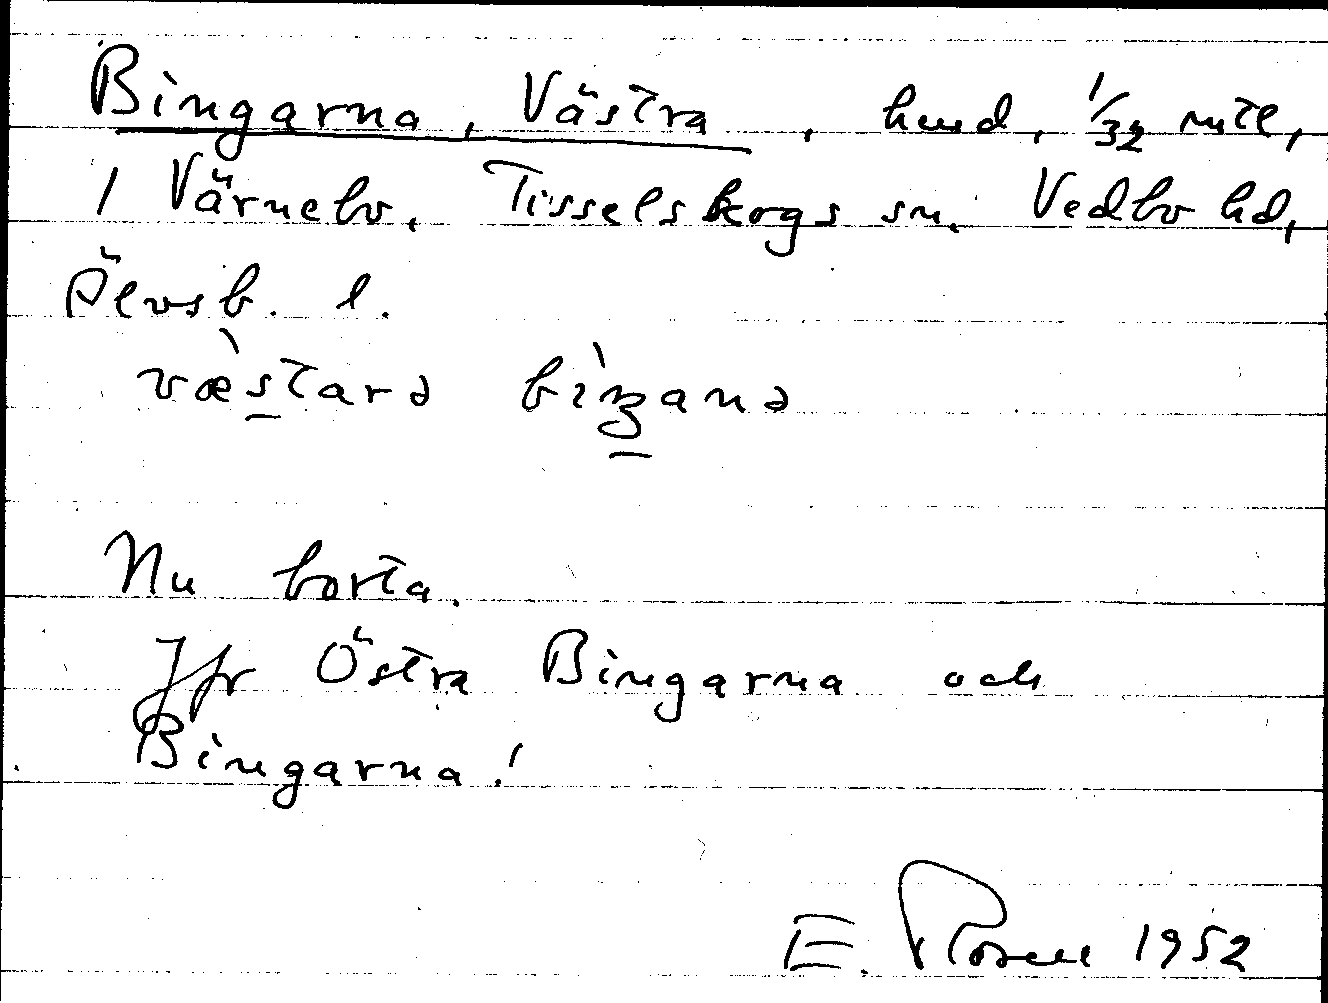 Bingarna, Västra, hmd, 1/32 mtl,
1 Värnebo, Tisselskogs sn. Vedbo hd,
Älvsb. l.
væ̀starə bìŋanə
Nu borta.
Jfr Östra Bingarna och
Bingarna!
E. Rosell 1952